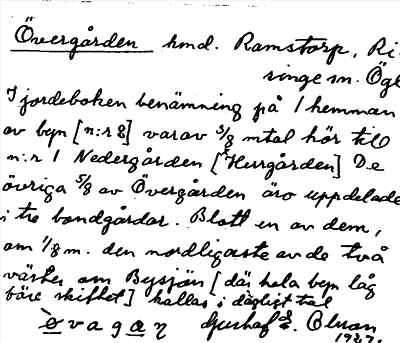 Övergården hmd. Ramstorp, Ri-
singe sn. Ögl
I jordeboken benämning på 1 hemman
av byn [n:r 2] varav 3/8 mtal hör till
n:r 1 Nedergården [Herrgården] De
övriga 5/8 av Övergården äro uppdelade
i tre bondgårdar. Blott en av dem,
om 1/8 m. den nordligaste av de två
väster om Bysjön [där hela byn låg
före skiftet] kallas i dagligt tal
övagaṇ Olsson
1927.